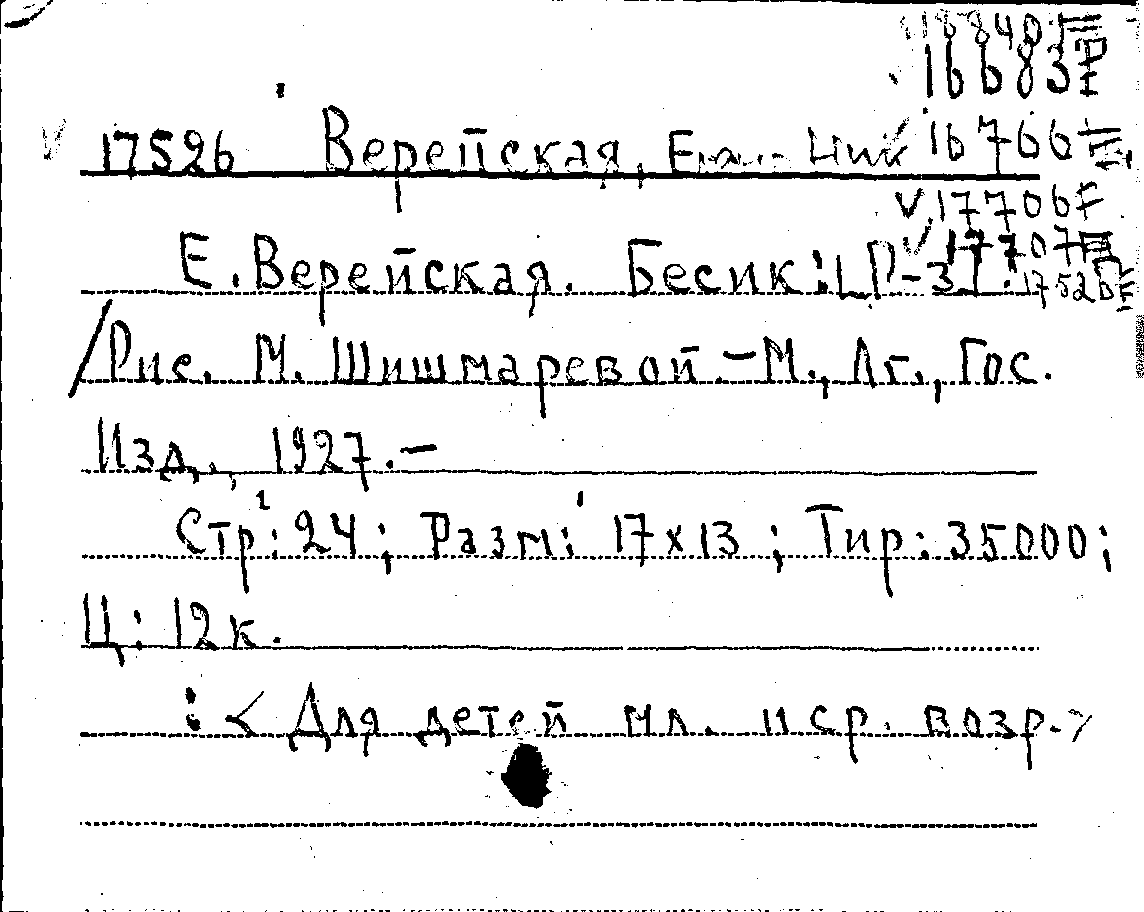 18840
16683
17526 Верейская, Ник 16766
17706
17707
Е. Верейская. Бесик: [Р-з].
1752
/Рис. М. Шишмаревой. – М., Лг., Гос.
Изд., 1927. –
Стр: 24; Разм: 17x13; Тир: 35000;
Ц: 12к.
: < Для детей мл. и ср. возр. >